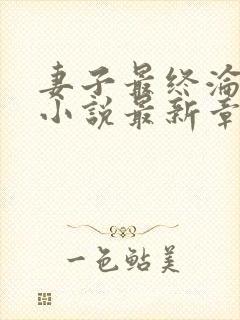 妻子最终淪
小説最新章
一色鲇美